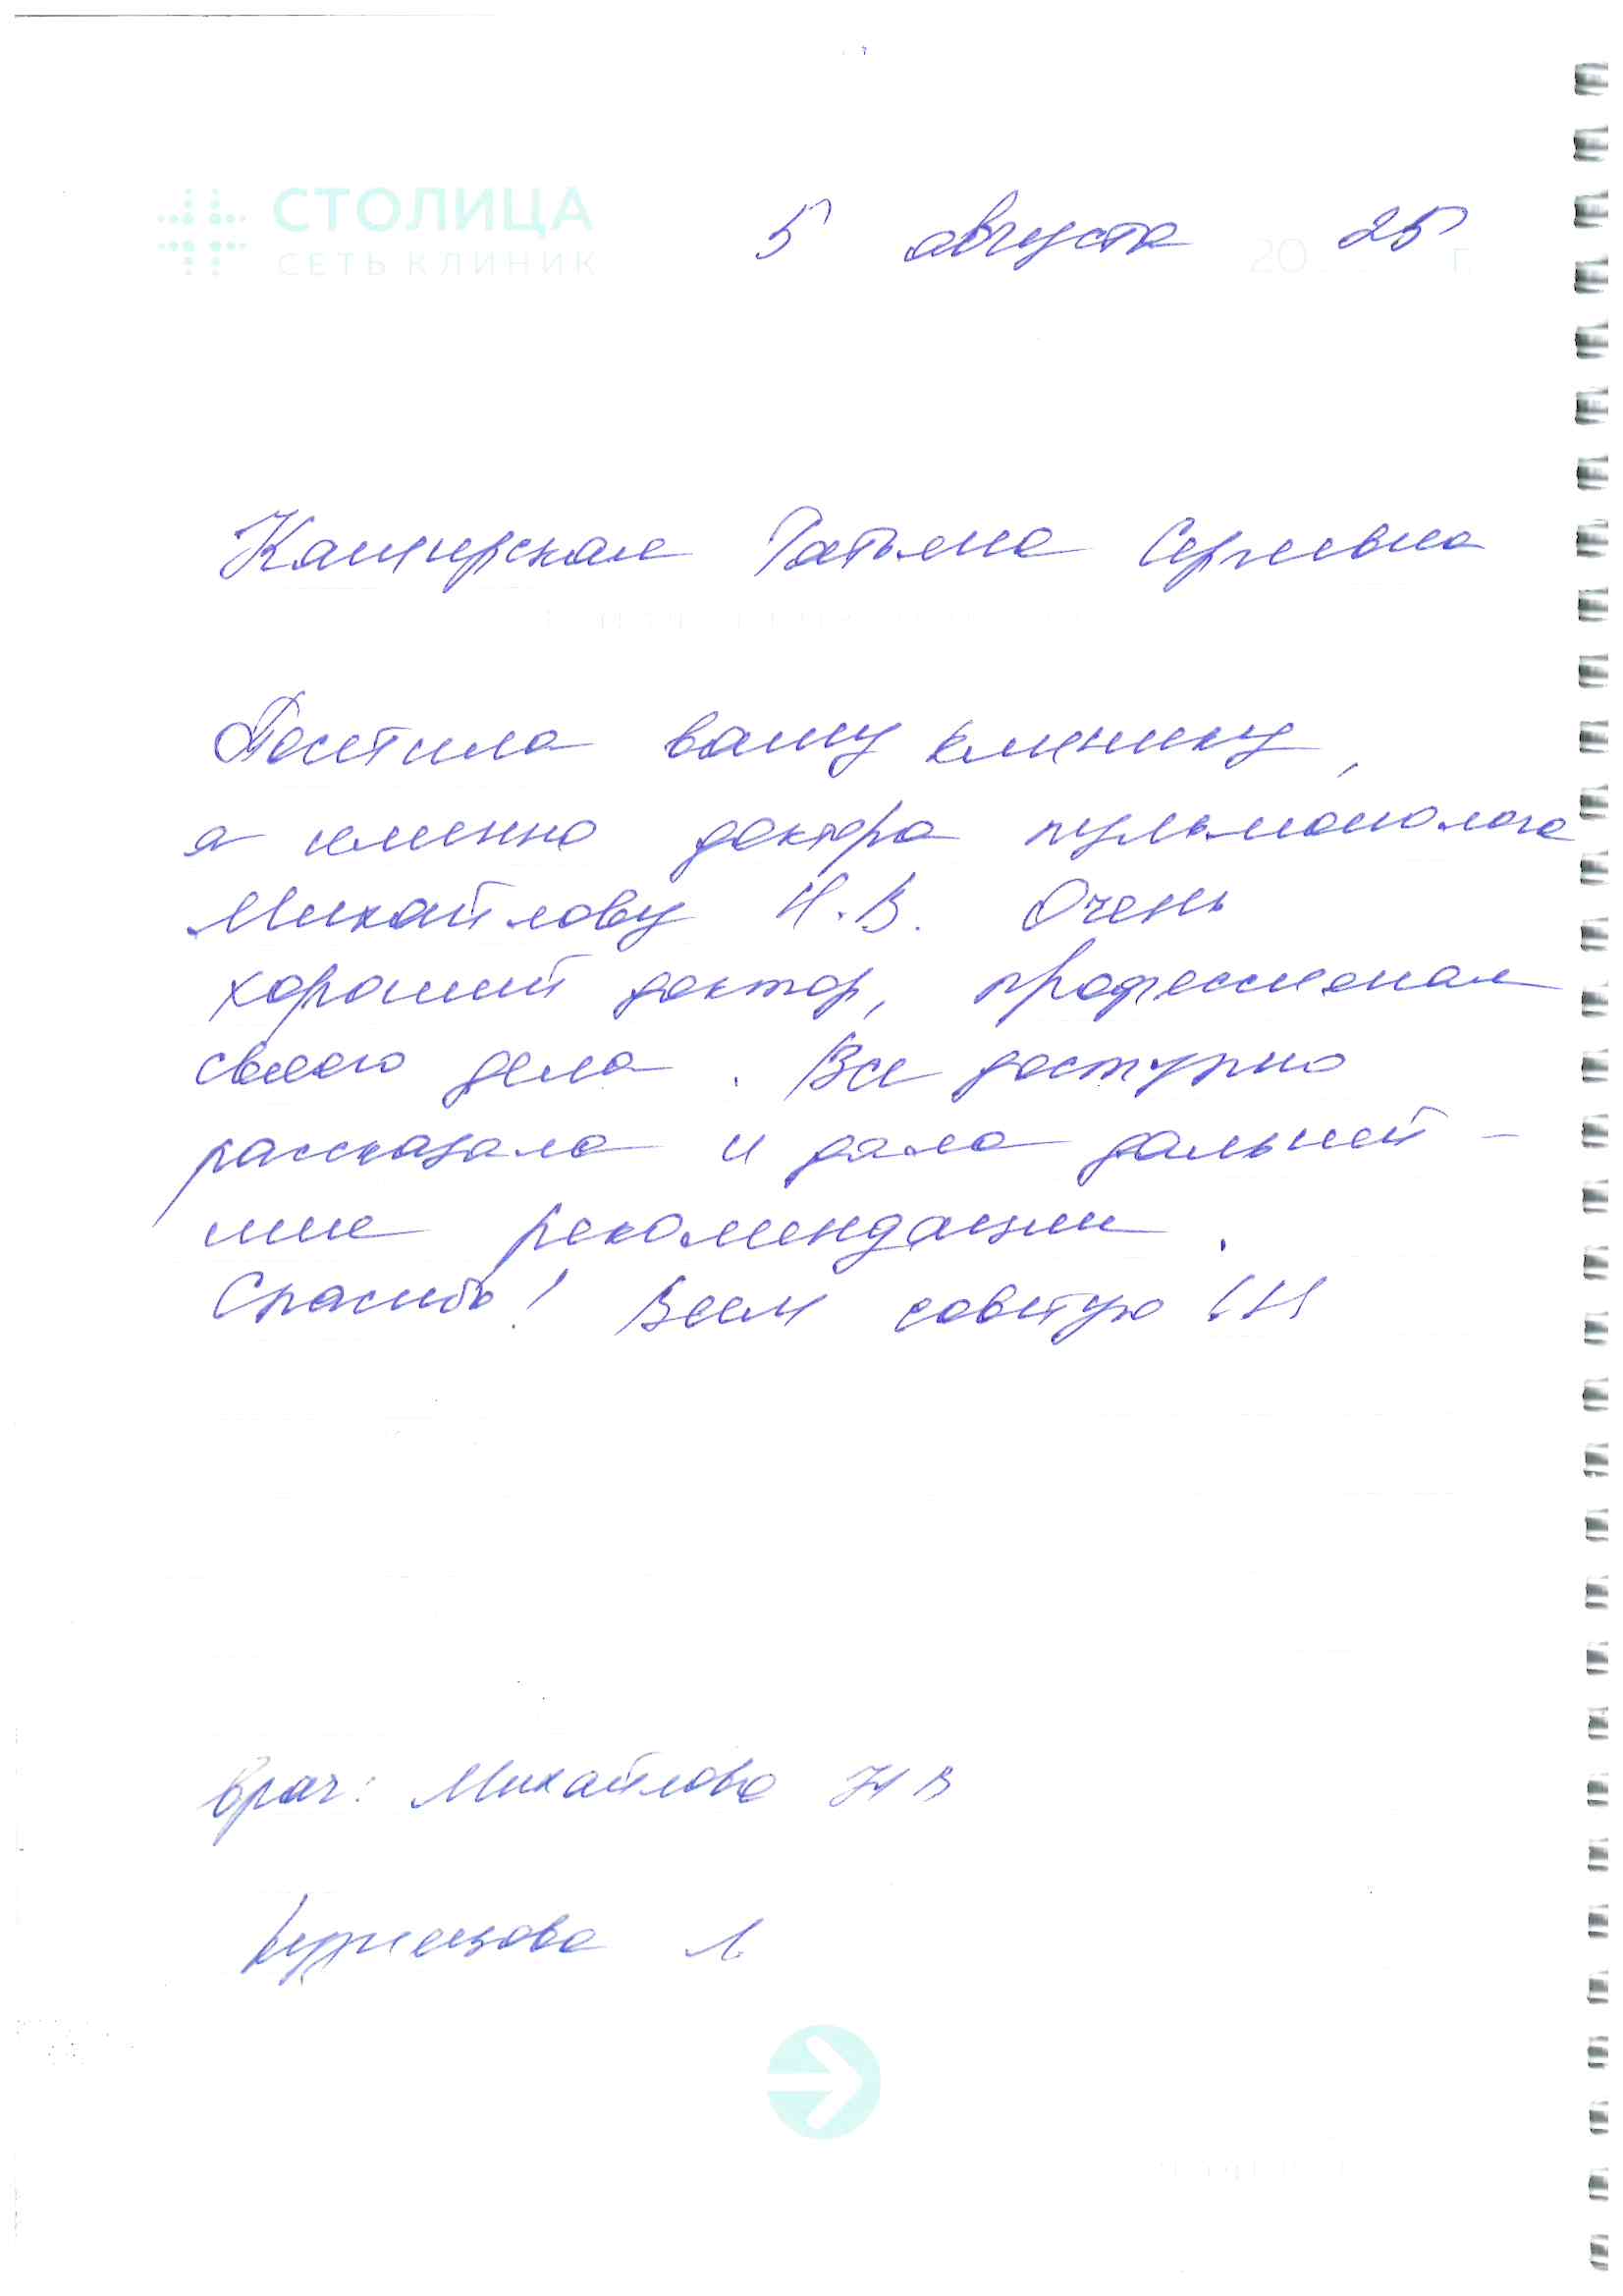 СТОЛИЦА
СЕТЬ КЛИНИК
5 августа 2025 г.
Каширская Татьяна Сергеевна
Посетила вашу клинику,
а именно доктора пульмонолога
Михайлову Н.В. Очень
хороший доктор, профессионал
своего дела. Все доступно
рассказала и дала дальней-
шие рекомендации.
Спасибо! Всем советую!!!
Врач: Михайлова Н В
Л.